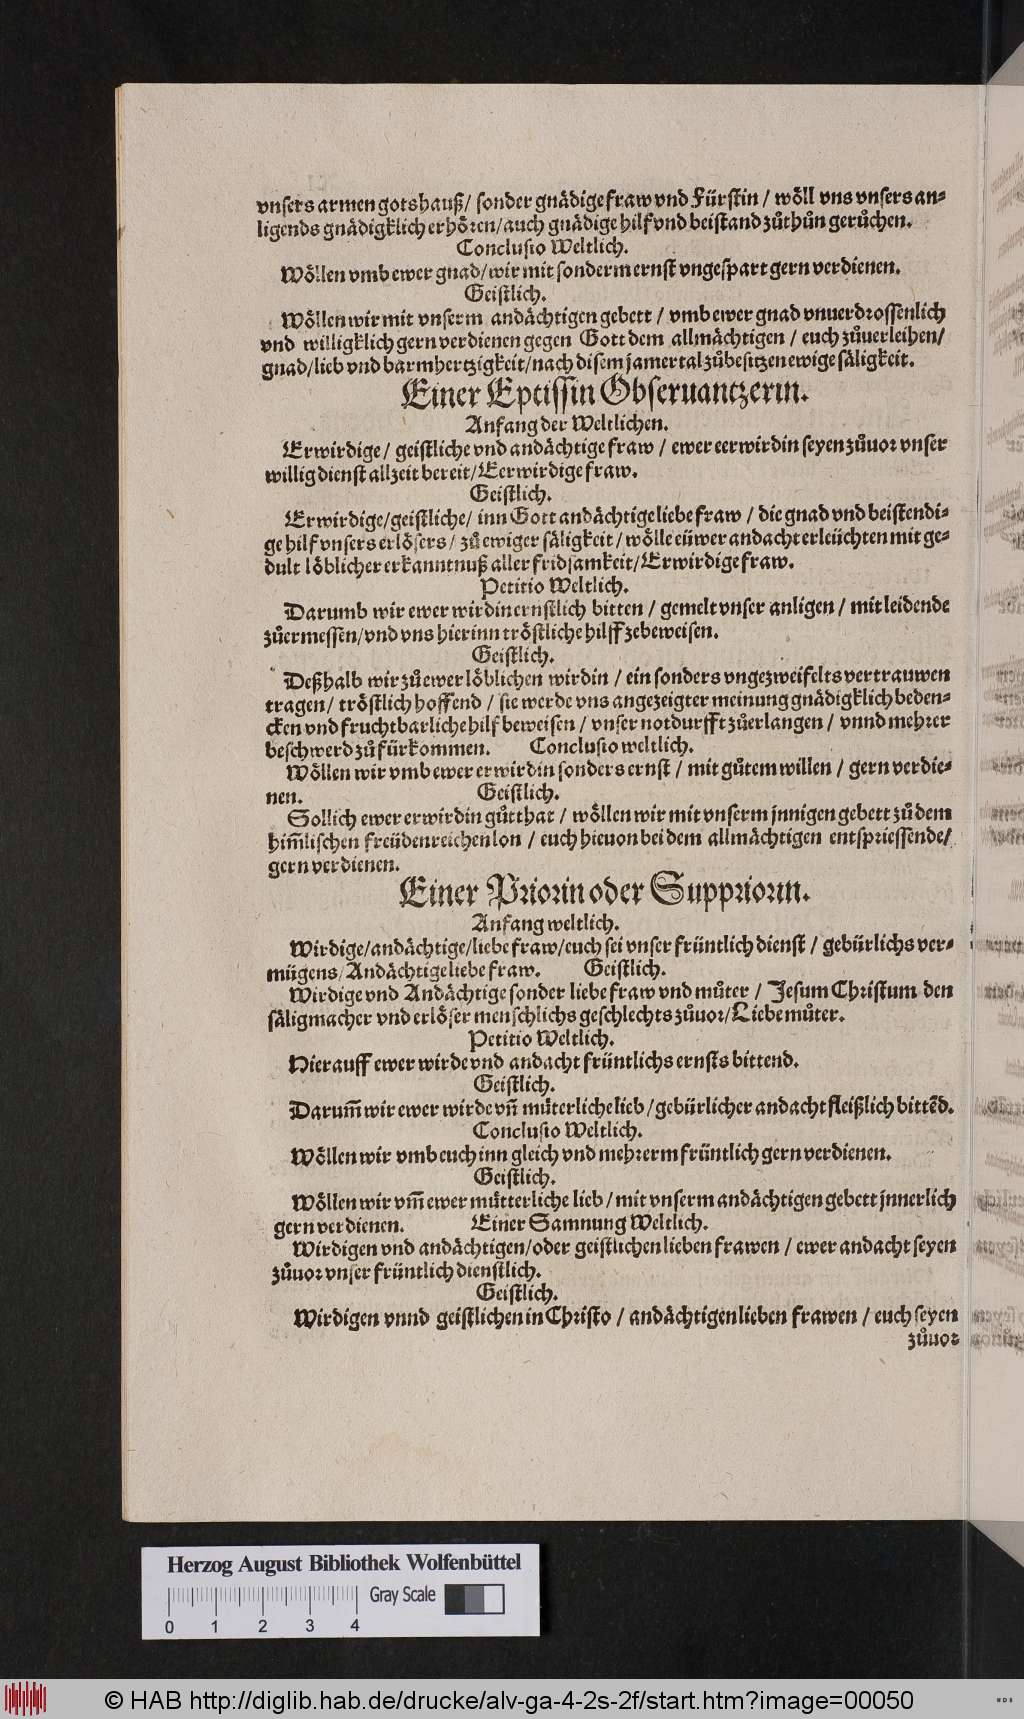 vnsers armen gotshauß / sonder gnädige fraw vnd Fürstin / wöll vns vnsers an⸗
ligends gnädigklich erhören / auch gnädige hilf vnd beistand zůthůn gerůchen.
Conclusio Weltlich.
Wöllen vmb ewer gnad / wir mit sonderm ernst vngespart gern verdienen.
Geistlich.
Wöllen wir mit vnserm andächtigen gebett / vmb ewer gnad vnuerdrossenlich
vnd willigklich gern verdienen gegen Gott dem allmächtigen / euch zůuerleihen /
gnad / lieb vnd barmhertzigkeit / nach disem jamertal zůbesitzen ewige säligkeit.
Einer Eptissin Obseruantzerin.
Anfang der Weltlichen.
Erwirdige / geistliche vnd andächtige fraw / ewer eerwirdin seyen zůuor vnser
willig dienst allzeit bereit / Eerwirdige fraw.
Geistlich.
Erwirdige / geistliche / inn Gott andächtige liebe fraw / die gnad vnd beistendi⸗
ge hilf vnsers erlösers / zů ewiger säligkeit / wölle eüwer andacht erleüchten mit ge⸗
dult löblicher erkanntnuß aller fridsamkeit / Erwirdige fraw.
Petitio Weltlich.
Darumb wir ewer wirdin ernstlich bitten / gemelt vnser anligen / mitleidende
zůermessen / vnd vns hierinn tröstliche hilff zebeweisen.
Geistlich.
Deßhalb wir zů ewer löblichen wirdin / ein sonders vngezweifelts vertrauwen
tragen / tröstlich hoffend / sie werde vns angezeigter meinung gnädigklich beden⸗
cken vnd fruchtbarliche hilf beweisen / vnser notdurfft zůerlangen / vnnd mehrer
beschwerd zů fürkommen. Conclusio weltlich.
Wöllen wir vmb ewer erwirdin sonders ernst / mit gůtem willen / gern verdie⸗
nen. Geistlich.
Sollich ewer erwirdin gůtthat / wöllen wir mit vnserm jnnigen gebett zů dem
him̃lischen freüdenreichen lon / euch hieuon bei dem allmächtigen entspriessende /
gern verdienen.
Einer Priorin oder Suppriorin.
Anfang weltlich.
Wirdige / andächtige / liebe fraw / euch sei vnser früntlich dienst / gebürlichs ver⸗
mügens / Andächtige liebe fraw. Geistlich.
Wirdige vnd Andächtige sonder liebe fraw vnd můter / Jesum Christum den
säligmacher vnd erlöser menschlichs geschlechts zůuor / Liebe můter.
Petitio Weltlich.
Hierauff ewer wirde vnd andacht früntlichs ernsts bittend.
Geistlich.
Darum̃ wir ewer wirde vñ müterliche lieb / gebürlicher andacht fleißlich bittẽd.
Conclusio Weltlich.
Wöllen wir vmb euch inn gleich vnd mehrerm früntlich gern verdienen.
Geistlich.
Wöllen wir vm̃ ewer mütterliche lieb / mit vnserm andächtigen gebett jnnerlich
gern verdienen. Einer Samnung Weltlich.
Wirdigen vnd andächtigen / oder geistlichen lieben frawen / ewer andacht seyen
zůuor vnser früntlich dienstlich.
Geistlich.
Wirdigen vnnd geistlichen in Christo / andächtigen lieben frawen / euch seyen
zůuor
Herzog August Bibliothek Wolfenbüttel
Gray Scale
0 1 2 3 4
© HAB http://diglib.hab.de/drucke/alv-ga-4-2s-2f/start.htm?image=00050